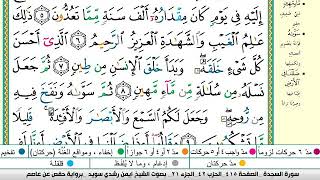 إِلَيْهِ فِى يَوْمٍ كَانَ مِقْدَارُهُۥٓ أَلْفَ سَنَةٍ مِّمَّا تَعُدُّونَ ٥ ذَٰلِكَ
عَٰلِمُ ٱلْغَيْبِ وَٱلشَّهَٰدَةِ ٱلْعَزِيزُ ٱلرَّحِيمُ ٦ ٱلَّذِىٓ أَحْسَنَ
كُلَّ شَىْءٍ خَلَقَهُۥ وَبَدَأَ خَلْقَ ٱلْإِنسَٰنِ مِن طِينٍ ٧ ثُمَّ جَعَلَ
نَسْلَهُۥ مِن سُلَٰلَةٍ مِّن مَّآءٍ مَّهِينٍ ٨ ثُمَّ سَوَّىٰهُ وَنَفَخَ فِيهِ
مِن رُّوحِهِۦ وَجَعَلَ لَكُمُ ٱلسَّمْعَ وَٱلْأَبْصَٰرَ وَٱلْأَفْـِٔدَةَ قَلِيلًا
مد ٦ حركات لزوماً مد ٢ أو ٤ أو ٦ جوازاً إخفاء، ومواقع الغنة (حركتان) تفخيم
مد واجب ٤ أو ٥ حركات مد حركتان إدغام، وما لا يلفظ قلقلة
سورة السجدة الصفحة ٤١٥ الحزب ٤٢ الجزء ٢١ بصوت الشيخ أيمن رشدي سويد برواية حفص عن عاصم